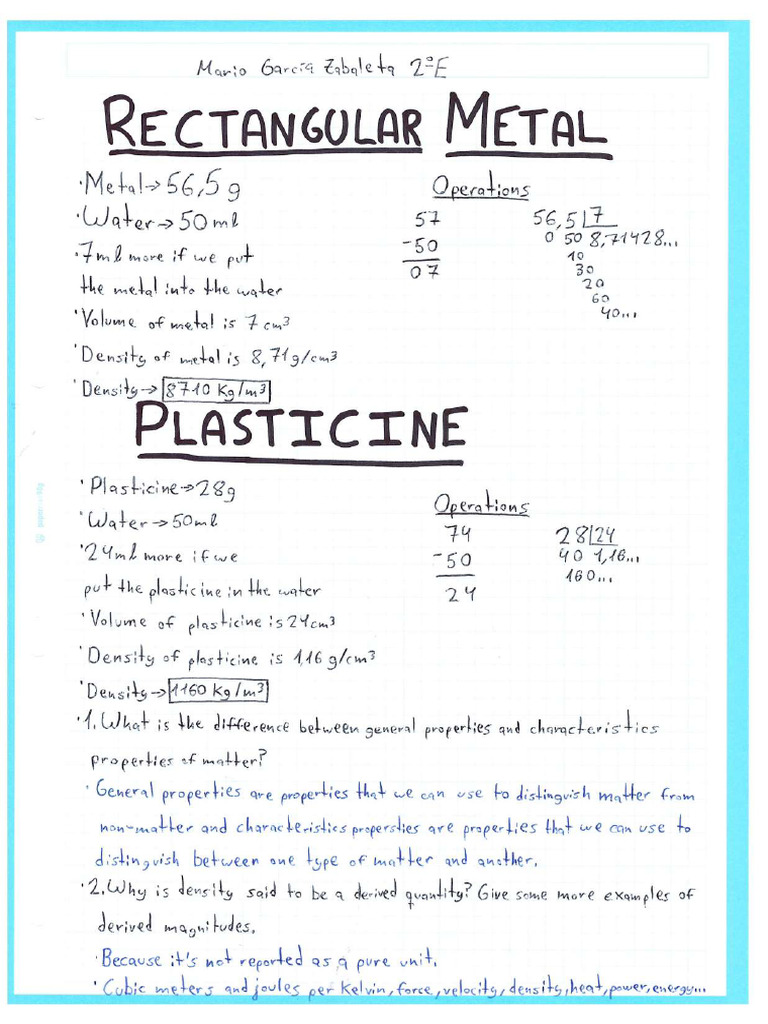 Mario García Zabaleta 2ºE
RECTANGULAR METAL
·Metal→56,5g
·Water→50ml
·7ml more if we put
the metal into the water
·Volume of metal is 7 cm³
·Density of metal is 8,71g/cm³
·Density→8710 Kg/m³
Operations
57
-50
07
56,5 7
0 50 8,71428...
10
30
20
60
40...
PLASTICINE
·Plasticine→28g
·Water→50ml
·24ml more if we
put the plasticine in the water
·Volume of plasticine is 24cm³
·Density of plasticine is 1,16 g/cm³
·Density→1160 Kg/m³
Operations
74
-50
24
28 24
40 1,16...
160...
·1. What is the difference between general properties and characteristics
properties of matter?
·General properties are properties that we can use to distinguish matter from
non-matter and characteristics propersties are properties that we can use to
distinguish between one type of matter and another.
·2. Why is density said to be a derived quantity? Give some more examples of
derived magnitudes.
·Because it's not reported as a pure unit.
·Cubic meters and joules per Kelvin, force, velocity, density, heat, power, energy...